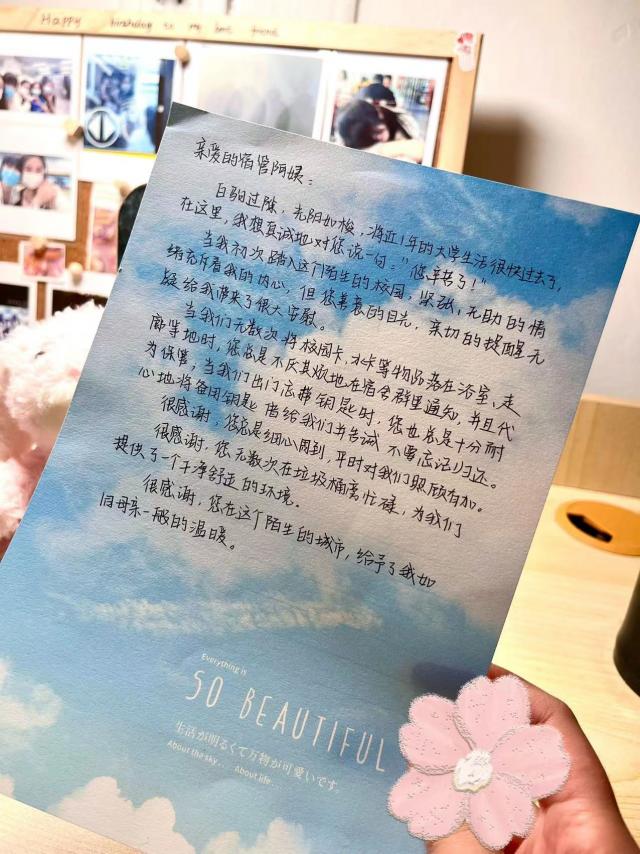 Happy birthday to my best friend
亲爱的宿管阿姨：
白驹过隙，光阴如梭，将近1年的大学生活很快过去了，
在这里，我想真诚地对您说一句："您辛苦了！"
当我初次踏入这个陌生的校园，紧张，无助的情
绪充斥着我的内心，但您慈衰的目光，亲切的提醒无
疑给我带来了很大安慰。
当我们无数次将校园卡，水卡等物品落在浴室、走
廊等地时，您总是不厌其烦地在宿舍群里通知，并且代
为保管，当我们出门忘带钥匙时，您也总是十分耐
心地将备用钥匙借给我们并告诫不要忘记归还。
很感谢，您总是细心周到，平时对我们照顾有加。
很感谢，您无数次在垃圾桶旁忙碌，为我们
提供了一个干净舒适的环境。
很感谢，您在这个陌生的城市，给予了我如
同母亲一般的温暖。
Everything is
SO BEAUTIFUL
生活が明るくて万物が可愛いです.
About the sky.. About life..